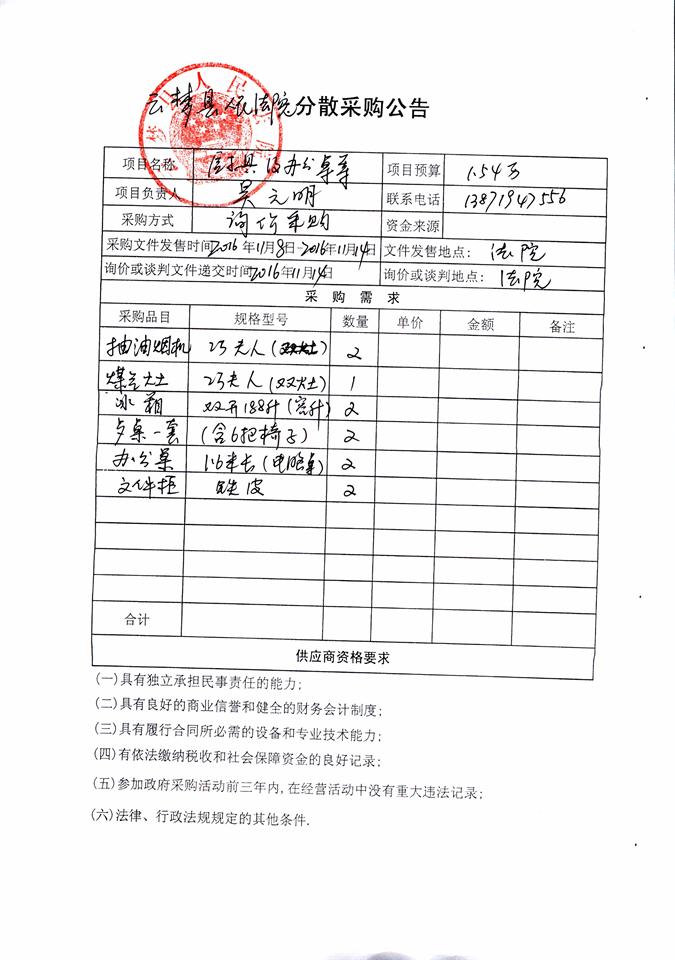 云梦县人民法院分散采购公告
项目名称 厨具及办公桌等 项目预算 1.54万
项目负责人 吴元明 联系电话 13871947556
采购方式 询价采购 资金来源
采购文件发售时间2016年11月8日-2016年11月14日 文件发售地点: 法院
询价或谈判文件递交时间2016年11月14日 询价或谈判地点: 法院
采 购 需 求
采购品目 规格型号 数量 单价 金额 备注
抽油烟机 巧夫人 2
煤气灶 巧夫人(双灶) 1
冰箱 双开188升(容升) 2
桌一套 (含6把椅子) 2
办公桌 1.6米长(电脑桌) 2
文件柜 铁皮 2
合计
供应商资格要求
(一)具有独立承担民事责任的能力;
(二)具有良好的商业信誉和健全的财务会计制度;
(三)具有履行合同所必需的设备和专业技术能力;
(四)有依法缴纳税收和社会保障资金的良好记录;
(五)参加政府采购活动前三年内,在经营活动中没有重大违法记录;
(六)法律、行政法规规定的其他条件.